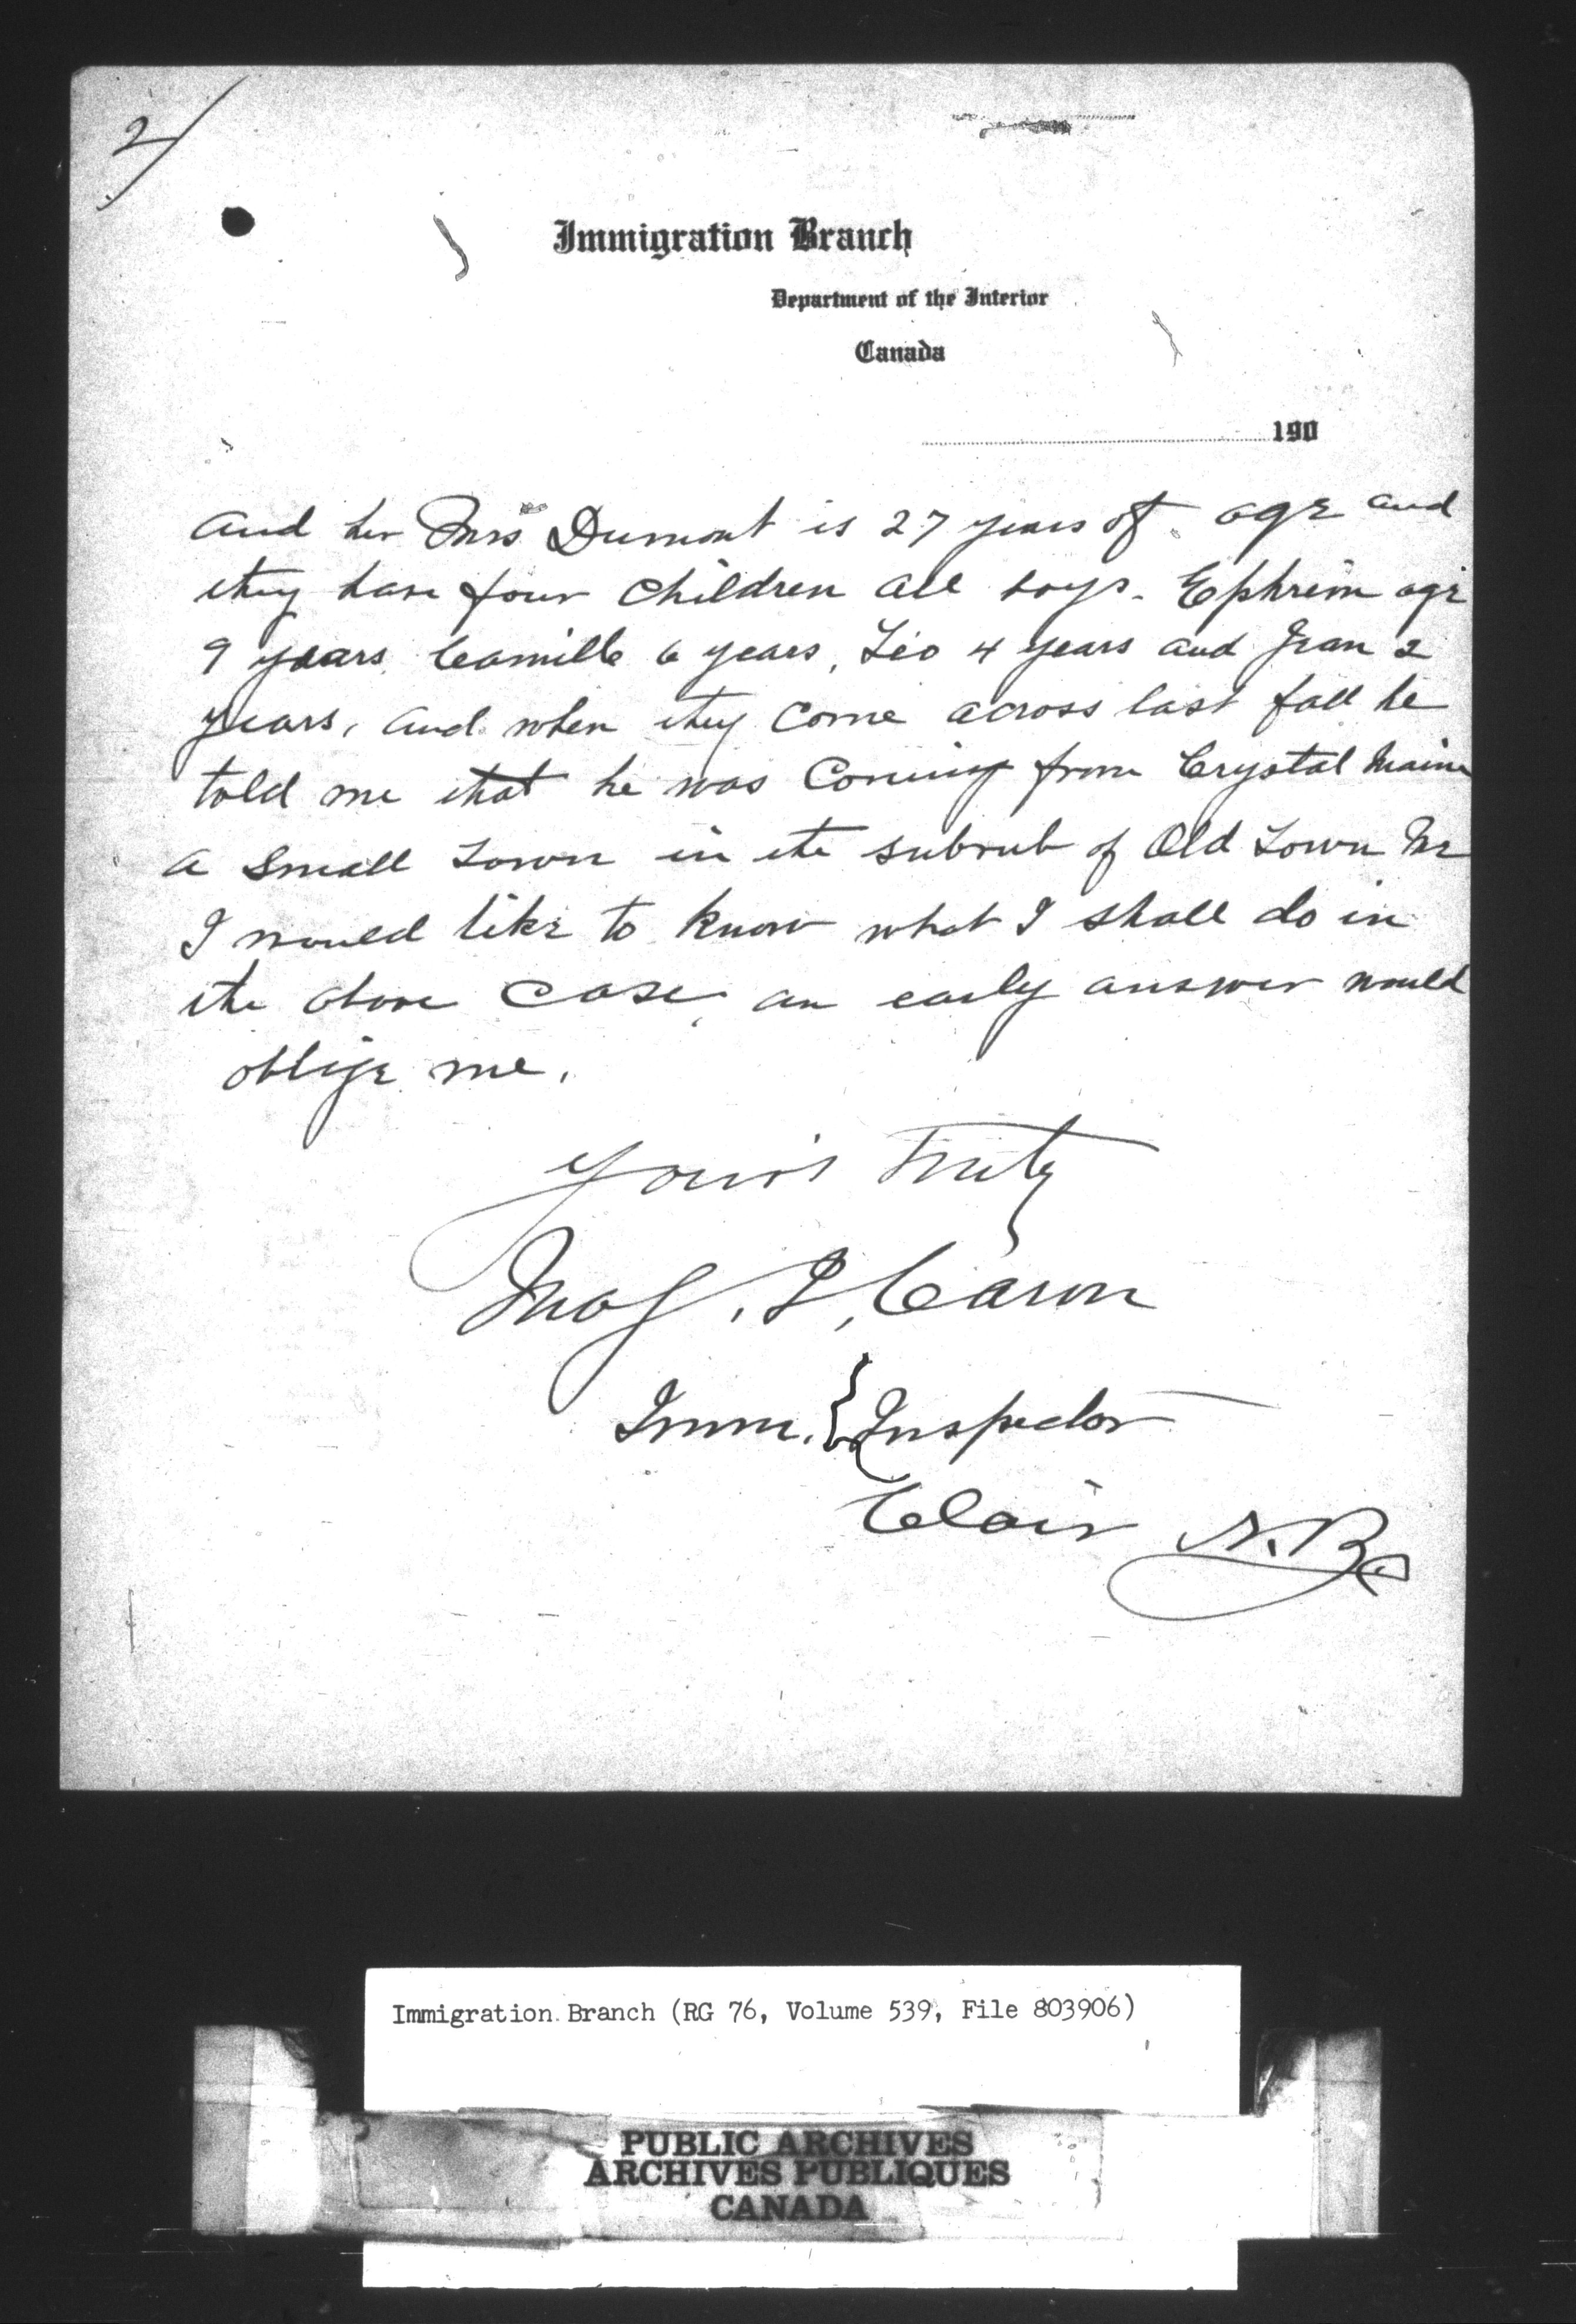 2/
Immigration Branch
Department of the Interior
Canada
190
and her Mrs Dumont is 27 years of age and
they have four children all boys. Ephrem age
9 years, Camille 6 years, Léo 4 years and Jean 2
years, and when they come across last fall he
told me that he was coming from Crystal Maine
a small town in the subrub of Old Town Me
I would like to know what I shall do in
the above case, an early answer would
oblige me.
Your's Truly
J. Caron
Imm. Inspector
Clair N.B.
Immigration Branch (RG 76, Volume 539, File 803906)
PUBLIC ARCHIVES
ARCHIVES PUBLIQUES
CANADA